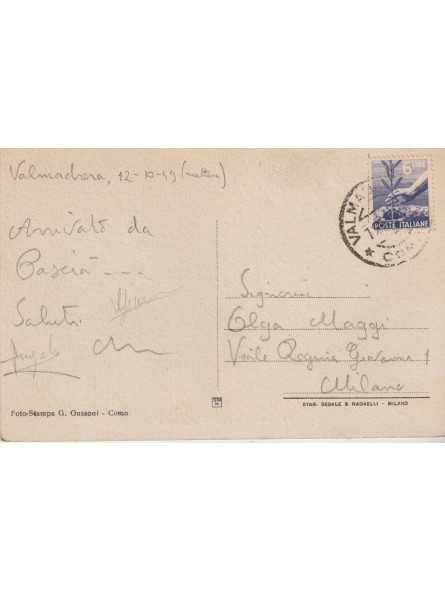 Valmadrera, 12-10-49 (mattina)
Arrivato da
Pascià ---
Saluti
Angelo
Signorina
Olga Maggi
Viale Regina Giovanna 1
Milano
6 LIRE
POSTE ITALIANE
VALMA
COM
Foto-Stampa G. Gussoni - Como
STAB. SEDALE & NAGRELLI - MILANO